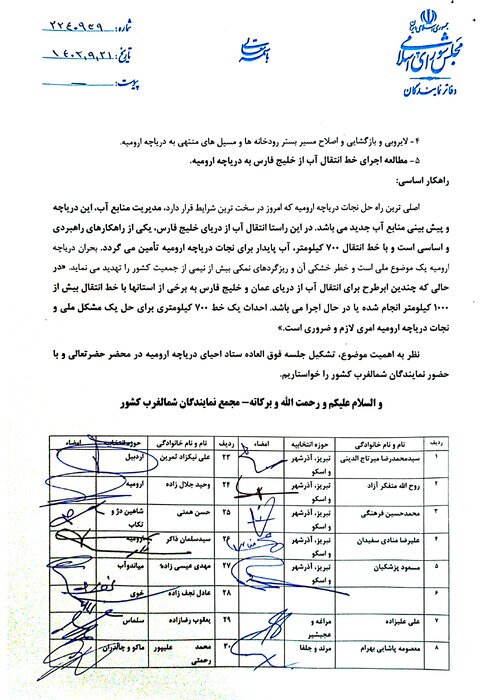 جمهوری اسلامی ایران
مجلس شورای اسلامی
دفاتر نمایندگان
باسمه تعالی
شماره: ۲۲۴۰۹۵۹
تاریخ: ۱۴۰۲,۹,۲۱
پیوست:
۴- لایروبی و بازگشایی و اصلاح مسیر بستر رودخانه ها و مسیل های منتهی به دریاچه ارومیه.
۵- مطالعه اجرای خط انتقال آب از خلیج فارس به دریاچه ارومیه.
راهکار اساسی:
اصلی ترین راه حل نجات دریاچه ارومیه که امروز در سخت ترین شرایط قرار دارد، مدیریت منابع آب، این دریاچه
و پیش بینی منابع آب جدید می باشد. در این راستا انتقال آب از دریای خلیج فارس، یکی از راهکارهای راهبردی
و اساسی است و با خط انتقال ۷۰۰ کیلومتر، آب پایدار برای نجات دریاچه ارومیه تأمین می گردد. بحران دریاچه
ارومیه یک موضوع ملی است و خطر خشکی آن و ریزگردهای نمکی بیش از نیمی از جمعیت کشور را تهدید می نماید. «در
حالی که چندین ابرطرح برای انتقال آب از دریای عمان و خلیج فارس به برخی از استانها با خط انتقال بیش از
۱۰۰۰ کیلومتر انجام شده یا در حال اجرا می باشد. احداث یک خط ۷۰۰ کیلومتری برای حل یک مشکل ملی و
نجات دریاچه ارومیه امری لازم و ضروری است.»
نظر به اهمیت موضوع، تشکیل جلسه فوق العاده ستاد احیای دریاچه ارومیه در محضر حضرتعالی و با
حضور نمایندگان شمالغرب کشور را خواستاریم.
و السلام علیکم و رحمت الله و برکاته- مجمع نمایندگان شمالغرب کشور
ردیف نام و نام خانوادگی حوزه انتخابیه امضاء ردیف نام و نام خانوادگی حوزه انتخابیه امضاء
۱ سیدمحمدرضا میرتاج الدینی تبریز، آذرشهر و اسکو ۲۳ علی نیکزاد ثمرین اردبیل
۲ روح الله متفکر آزاد تبریز، آذرشهر و اسکو ۲۴ وحید جلال زاده ارومیه
۳ محمدحسین فرهنگی تبریز، آذرشهر و اسکو ۲۵ حسن همتی شاهین دژ و تکاب
۴ علیرضا منادی سفیدان تبریز، آذرشهر و اسکو ۲۶ سیدسلمان ذاکر ارومیه
۵ مسعود پزشکیان تبریز، آذرشهر و اسکو ۲۷ مهدی عیسی زاده میاندوآب
۶ ۲۸ عادل نجف زاده خوی
۷ علی علیزاده مراغه و عجبشیر ۲۹ یعقوب رضازاده سلماس
۸ معصومه پاشایی بهرام مرند و جلفا ۳۰ محمد علیپور رحمتی ماکو و چالدران